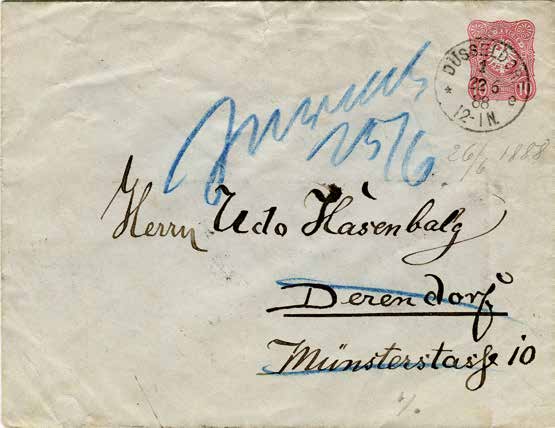 DÜSSELDORF
1
88
12-1N.
10
10
zurück
25/6
26/6 1888
Herrn Udo Hasenbalg
Derendorf
Münsterstasse 10